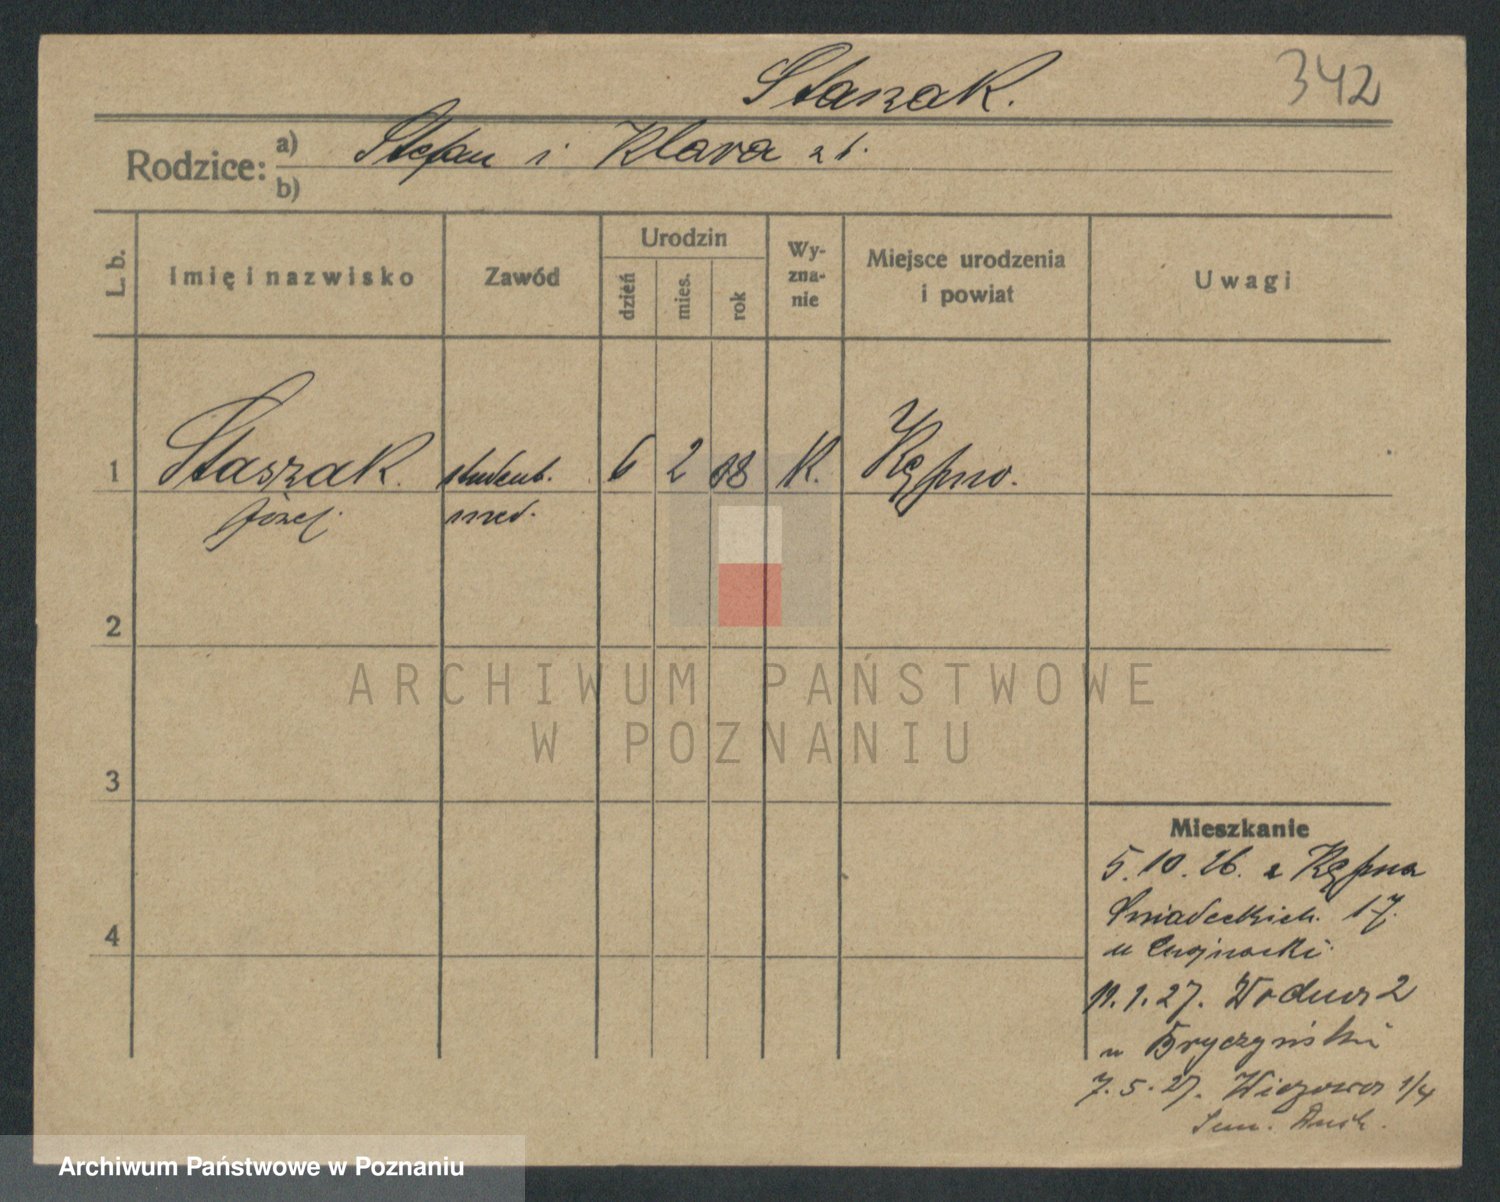 Staszak. 342
Rodzice: a) Stefan i Klara
b)
L. b. Imię i nazwisko Zawód Urodzin dzień mies. rok Wy-zna-nie Miejsce urodzenia i powiat Uwagi
1 Staszak. student. 6 2 08 K. Kępno.
Józef. med.
2
ARCHIWUM PAŃSTWOWE
W POZNANIU
3
Mieszkanie
5.10.26. z Kępna
Śniadeckich 17.
4
u
27. Wodna 2
u Bryczyński
7.5.27. 1/4
Archiwum Państwowe w Poznaniu